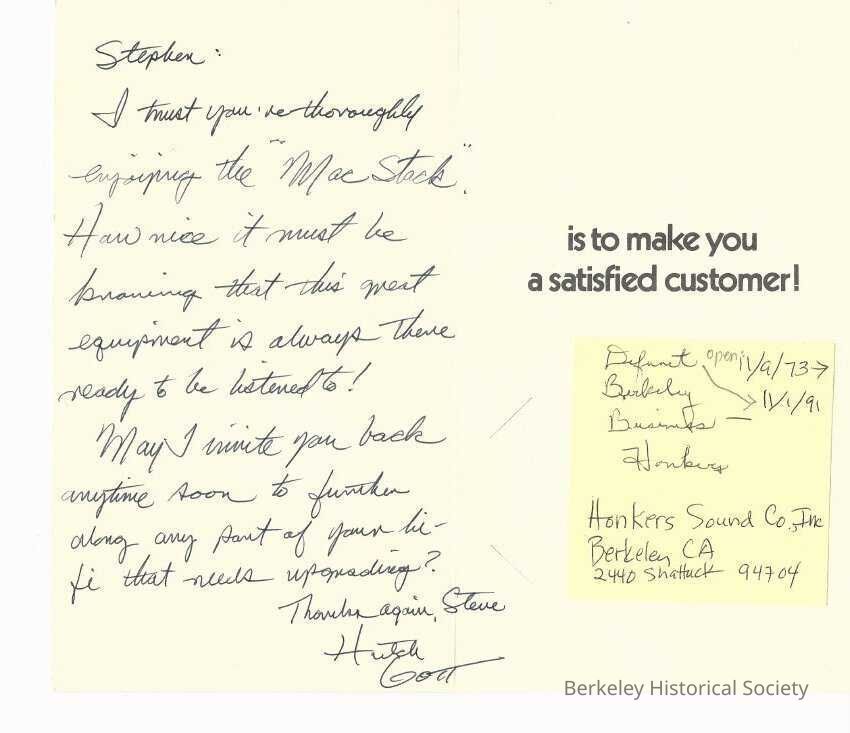 Stephen:
I trust you've thoroughly
enjoying the "Mac Stack".
How nice it must be
knowing that this great
equipment is always there
ready to be listened to!
May I invite you back
anytime soon to further
along any part of your hi-
fi that needs upgrading?
Thanks again, Steve
Hutch
is to make you
a satisfied customer!
Defunct open: 11/9/73→
Berkeley 11/1/91
Business —
Honkers
Honkers Sound Co., Inc
Berkeley CA
2440 Shattuck 94704
Berkeley Historical Society